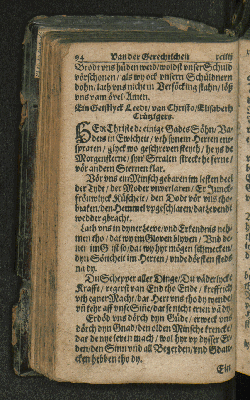 94 Van der Gerechticheit
Brodt vns hüden werd/woldst vnser Schuld
vörschonen/ als wy ock vnsern Schüldnern
dohn. lath vns nicht in Versöcking stahn/ löß
vns vam övel. Amen.
Ein Geistlyck Leedt/ van Christo/ Elisabeth
Crützigers.
HEr Christ de einige Gades Söhn/ Va-
ders in Ewicheit/ vth synem Herten ent-
spraten/ glyck wo geschreven steyt/ he ys de
Morgensterne/ syn Stralen strecket he ferne/
vör andern Sternen klar.
Vör vns ein Minsch gebaren im lesten deel
der Tydt/ der Moder vnverlaren/ Er Junck-
frouwlyck Küscheit/ den Dodt vör vns tho-
baken/ den Hemmel vpgeschlaten/ dat levendt
wedder gebracht.
Lath vns in dyner Leve/ vnd Erkendtnis neh-
men tho/ dat wy im Gloven blyven/ Vnd de-
nen im Geist so/ dat wy hyr mögen schmecken/
dyn Söticheit im Herten/ vnd dörsten steds
na dy.
Du Schepper aller Dinge/ Du väderlycke
Krafft/ regerst van End tho Ende/ krefftich
vth egner Macht/ dat Hert vns tho dy wende/
vn kehr aff vnse Sinne/ dat se nicht erren va dy.
Erdöd vns dörch dyn Güde/ erweck vns
dörch Gnad/ den olden Minsche krencke/
dat de nye leven mach/ wol hyr vp dysser Er-
den/ den Sinn vnd all Begerden/ vnd Gedan-
cken hebben tho dy.
Ein